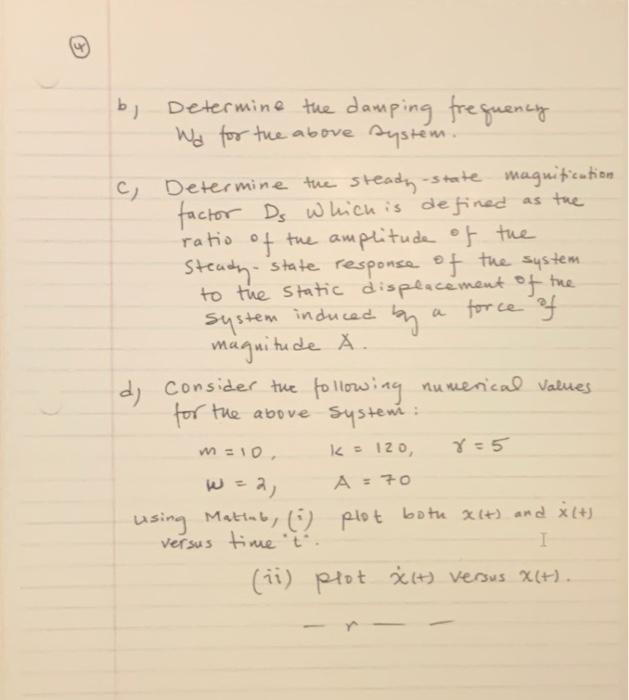 4
b) Determine the damping frequency
Wd for the above system.
c) Determine the steady-state magnification
factor Ds which is defined as the
ratio of the amplitude of the
Steady-state response of the system
to the static displacement of the
system induced by a force of
magnitude A.
d) Consider the following numerical values
for the above system:
m = 10, k = 120, γ = 5
w = 2, A = 70
using Matlab, (i) plot both x(t) and ẋ(t)
versus time "t".
(ii) plot ẋ(t) versus x(t).
— r — —